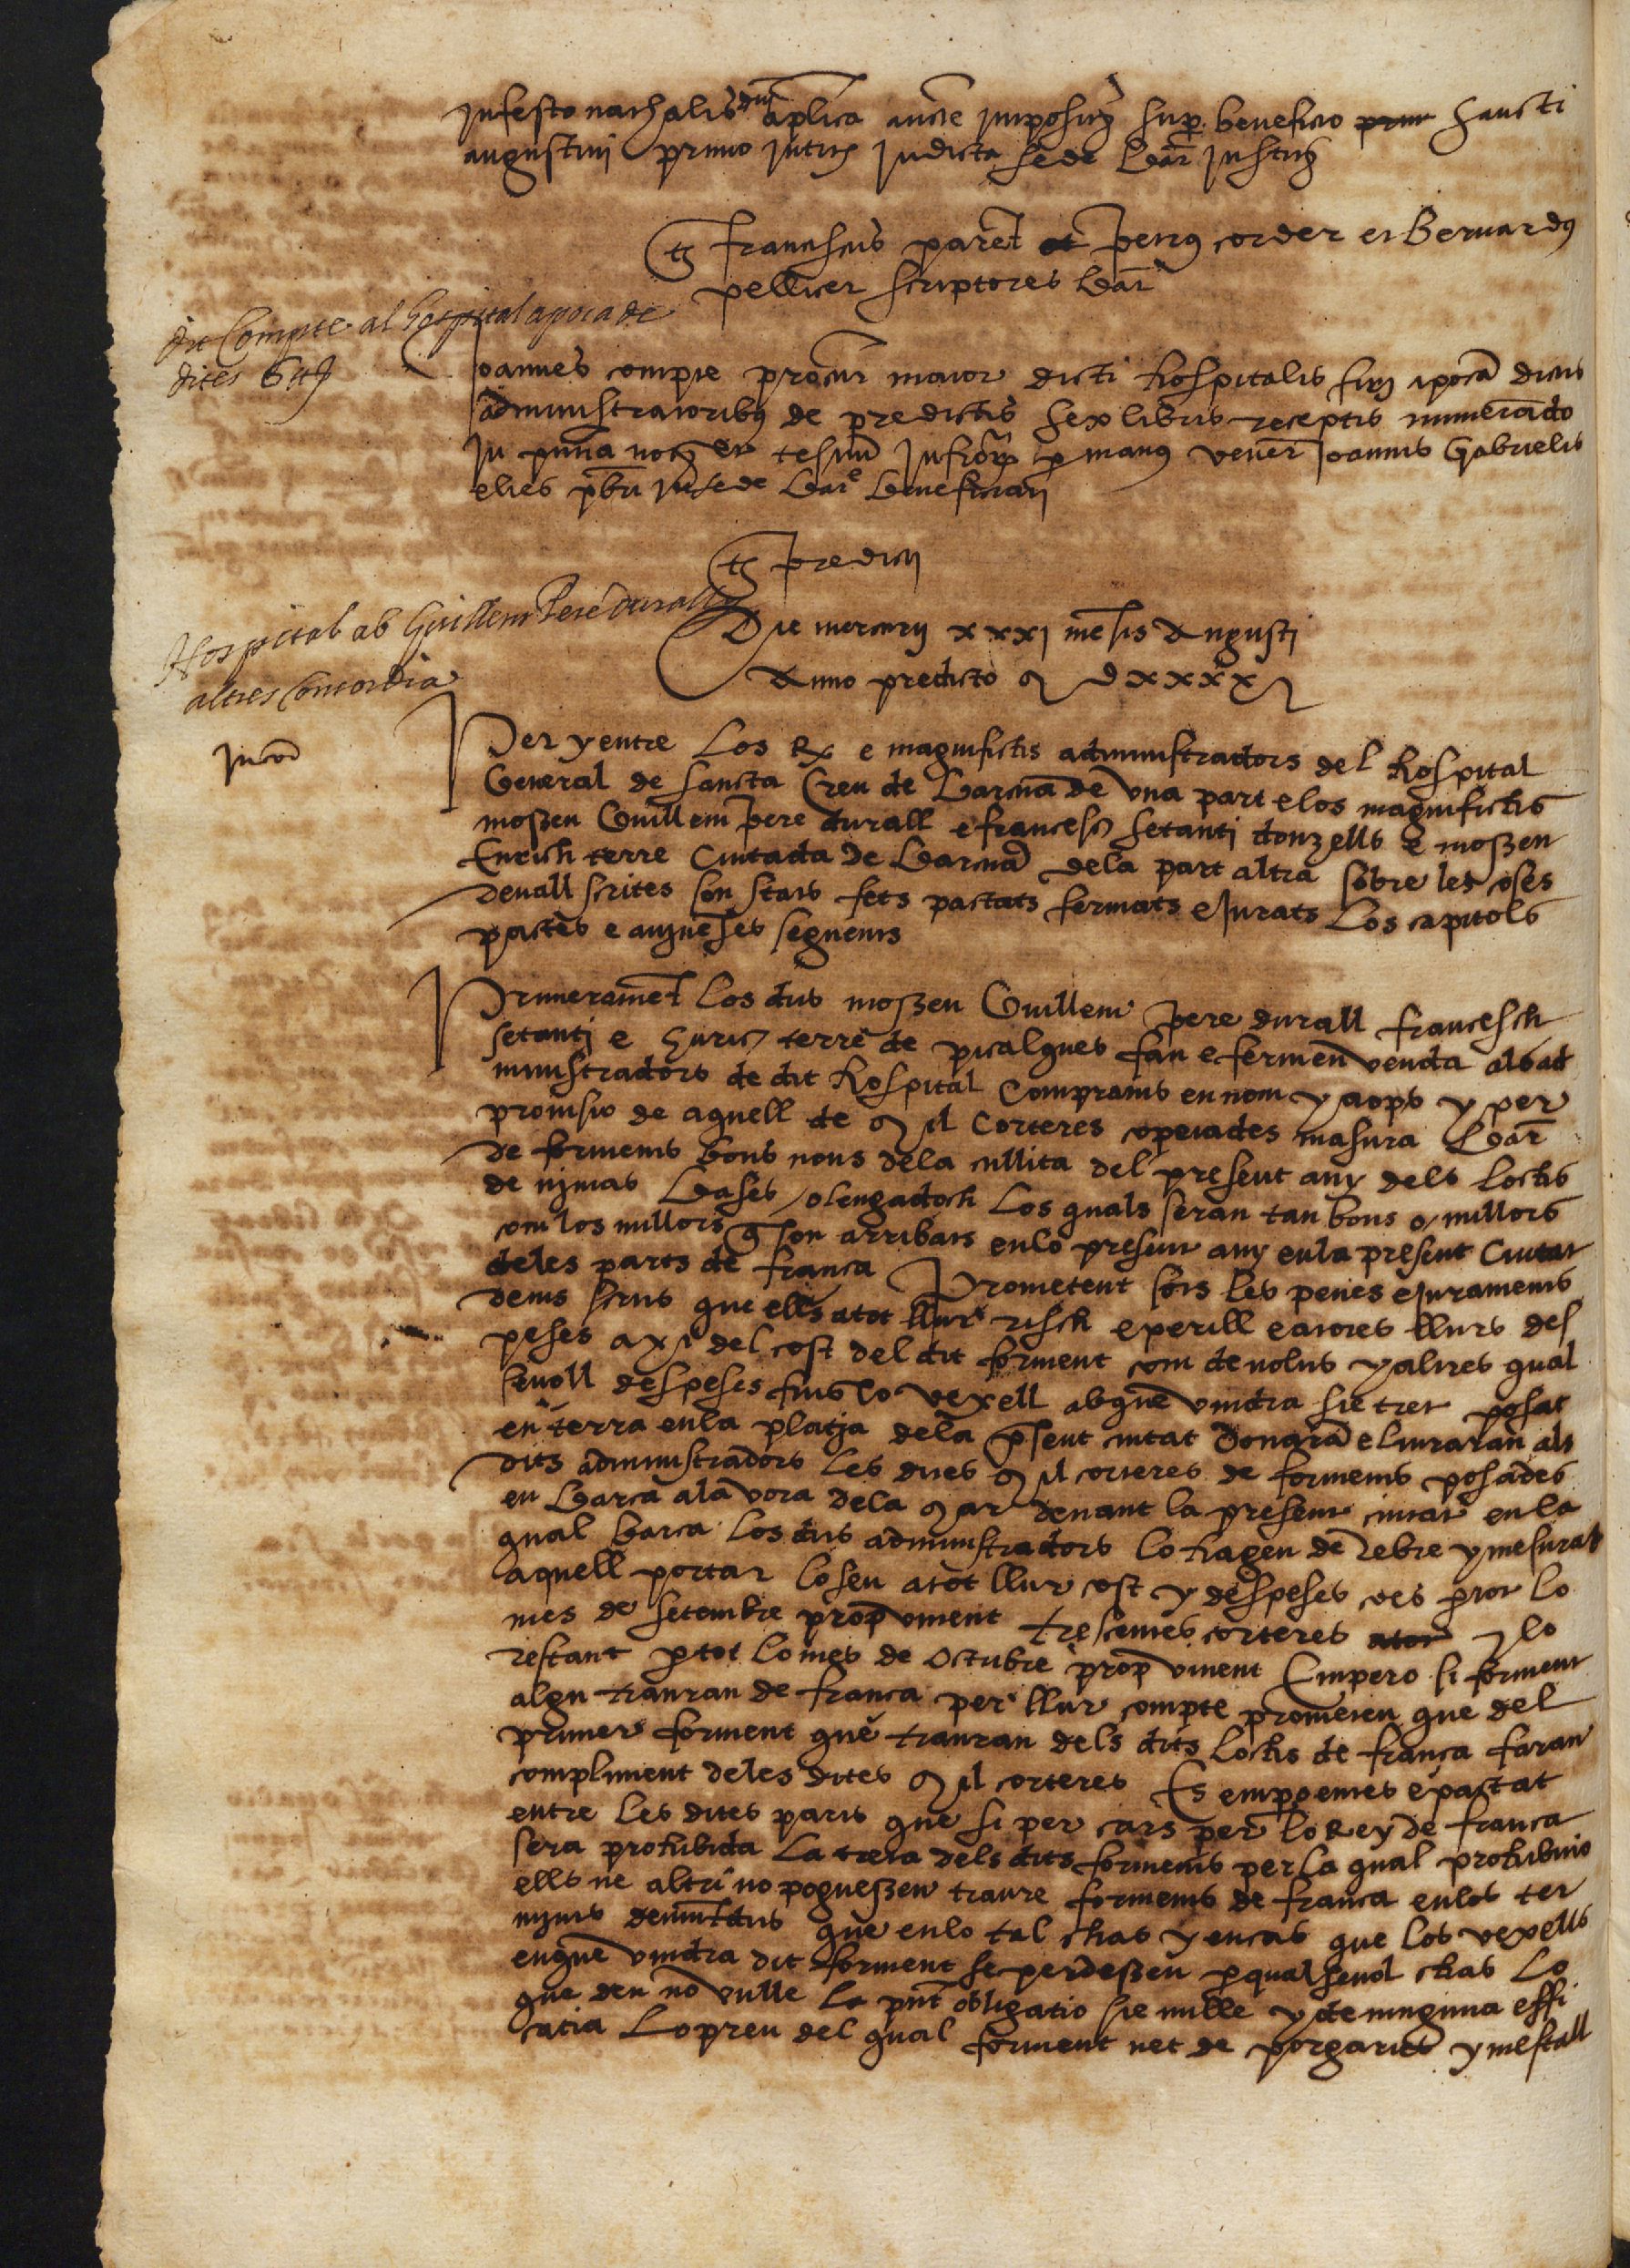 In festo nathalis dni aplica aucte imposit sup beneficio sancti
augustini primo intus in dicta sede Bar instit
ts franciscus paret et petrus corder et Bernardus
pellicer scriptores bar
dit Compte al hospital apoca de
dites 6 ll
Joannes compte procur maior dicti hospitalis firm apoca dictis
administratoribus de predictis sex libris receptis numerando
in pntia not et testium infror p manus vener Joannis Gabrielis
elies pbri in sede bar beneficiati
ts predicti
Hospital ab Guillem Pere durall y
altres Concordia
Die mercurij xxxj mensis Augusti
Anno predicto M D xxxx
In cor
Per y entre los R e magnifichs administradors del hospital
General de sancta Creu de Barna de una part e los magnifichs
mossen Guillem pere durall e francesch setanti donzells e mossen
Enrich terre Ciutada de Barna dela part altra sobre les coses
devall scrites son stats fets pactats fermats e jurats los capitols
pactes e avineses seguents
Primerament los dits mossen Guillem pere durall francesch
setanti e henrich terre de picalques fan e fermen venda als ad
ministradors de dit hospital comprants en nom y a ops y per
provisio de aquell de M il corteres operades masura Bar
de forments bons nous dela cullita del present any dels lochs
de nimas bases o lengadoch los quals seran tan bons o millors
com los millors q son arribats en lo present any en la present Ciutat
deles parts de franca Prometent sots les penes e juraments
devis scrits que ells a tot llur risch e perill e a totes llurs des
peses axi del cost del dit forment com de nolits y altres qual
sevoll despeses fins lo vexell ab que vindra sie tret posat
en terra en la platja dela psent ciutat donaran e liuraran als
dits administradors les dites M il corteres de forments posades
en barca a la vora dela Mar devant la present ciutat en la
qual barca los dits administradors lo hagen de rebre y mesurat
aquell portar lo seu a tot llur cost y despeses ces p tot lo
mes de setembre prop vinent trescentes corteres y lo
restant p tot lo mes de octubre prop vinent Empero si forment
algu trauran de franca per llur compte prometen que del
primer forment que trauran dels dits lochs de franca faran
compliment deles dites M il corteres Es empero entes e pactat
entre les dites parts que si per cars per lo Rey de franca
sera prohibida la treta dels dits forments per la qual prohibicio
ells ne altri no poguessen traure forments de franca en los ter
mens demuntdits que en lo tal chas y en cas que los vexells
en que vindra dit forment se perdessen p qualsevol chas lo
que deu no vulle la pnt obligatio sie nulle y de ninguna effi
catia Lo preu del qual forment net de porgaries y mestall